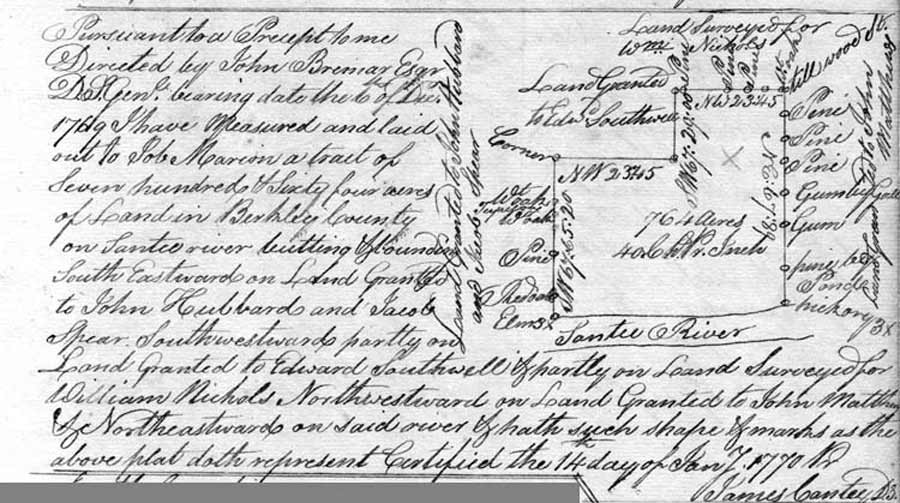 Pursuant to a Precept to me
Directed by John Bremar Esqr
D. S. Genl. bearing date the 6 of Dec.
1769 I have Measured and laid
out to Job Marion a tract of
Seven hundred & Sixty four acres
of Land in Berkley County
on Santee river butting & bounding
South Eastward on Land Granted
to John Hubbard and Jacob
Spear. Southwestward partly on
Land Granted to Edward Southwell & partly on Land Surveyed for
William Nichols Northwestward on Land Granted to John Matthews
& Northeastward on said river & hath such shape & marks as the
above plat doth represent Certified the 14th day of Jany. 1770 Pr
James Cantey D.S.
Land Granted to John Hubbard
and Jacob Spear
Land Surveyed for
Wm Nichols
Land Granted
to Edwd Southwell
Corner
NW 23.45
NW 23.45
Pine
Pine
Pine
Pine
Pine
Pine
Gum
Gum
Pond
hickory 3x
Land Grant
to John
Matthews
764 Acres
40 Ch Pr. Inch
Wt Oak
Pine
Red oak
Elm 3x
SW 67: 65.20
Santee River